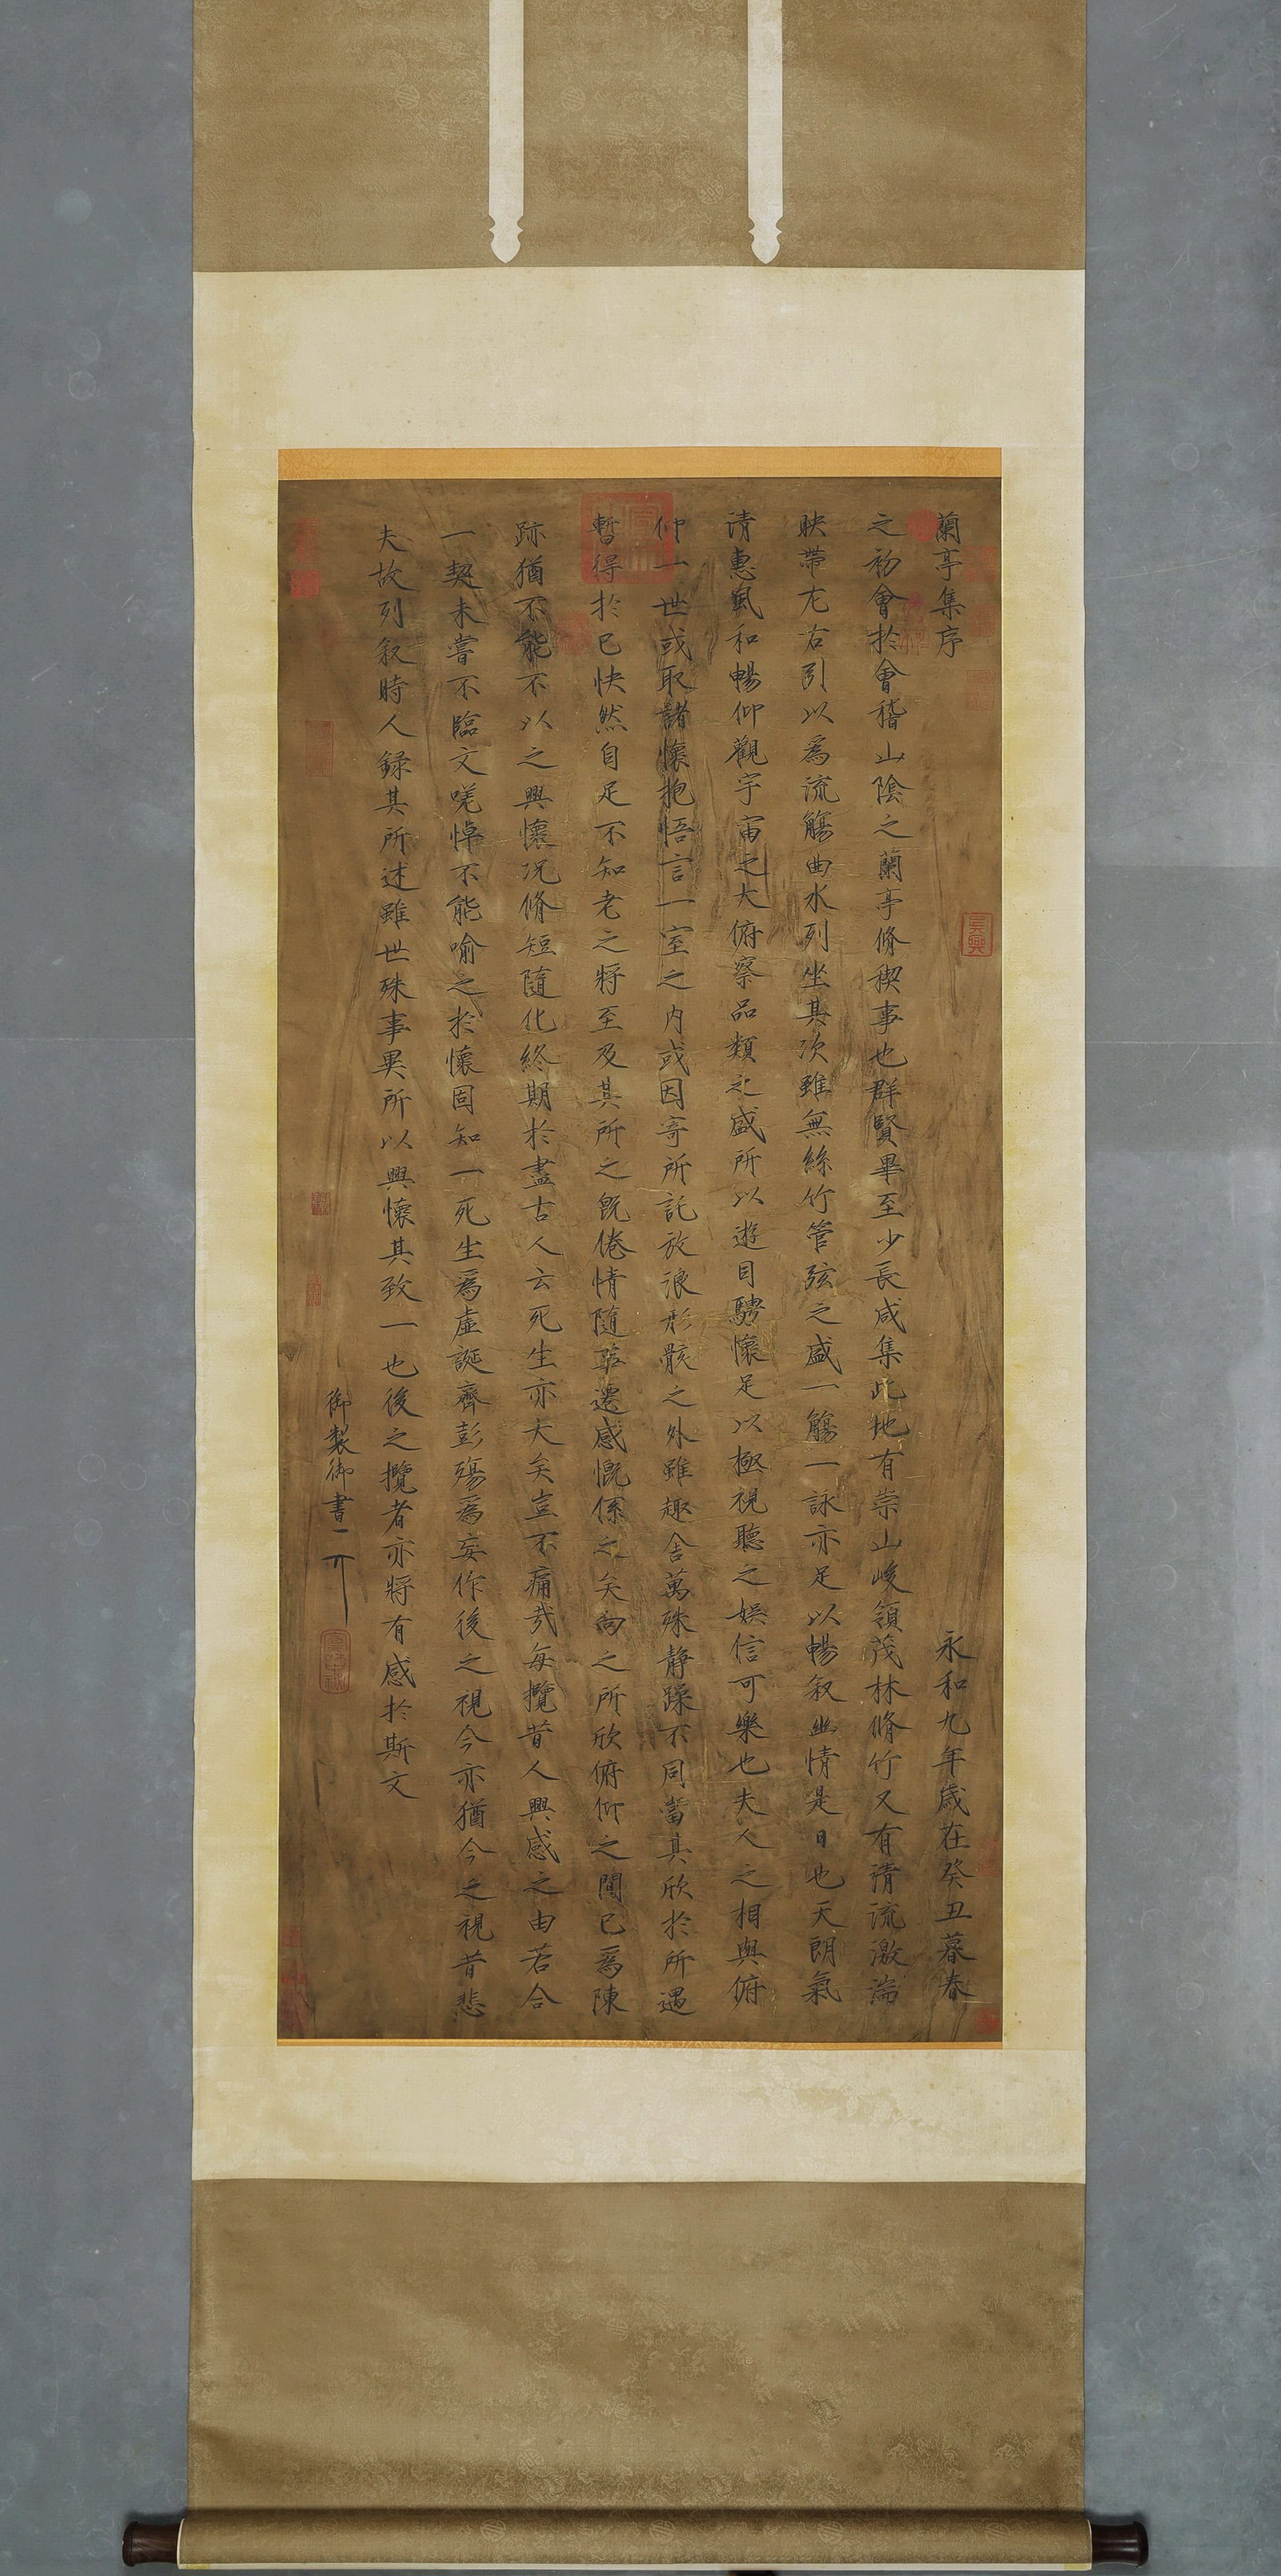 蘭亭集序
永和九年歲在癸丑暮春
之初會於會稽山陰之蘭亭脩稧事也群賢畢至少長咸集此地有崇山峻領茂林脩竹又有清流激湍
映帶左右引以爲流觴曲水列坐其次雖無絲竹管弦之盛一觴一詠亦足以暢叙幽情是日也天朗氣
清惠風和暢仰觀宇宙之大俯察品類之盛所以遊目騁懷足以極視聽之娛信可樂也夫人之相與俯
仰一世或取諸懷抱悟言一室之内或因寄所託放浪形骸之外雖趣舍萬殊静躁不同當其欣於所遇
暫得於已快然自足不知老之將至及其所之既倦情隨事遷感慨係之矣向之所欣俯仰之間已爲陳
跡猶不能不以之興懷況脩短隨化終期於盡古人云死生亦大矣豈不痛哉每攬昔人興感之由若合
一契未嘗不臨文嗟悼不能喻之於懷固知一死生爲虛誕齊彭殤爲妄作後之視今亦猶今之視昔悲
夫故列叙時人錄其所述雖世殊事異所以興懷其致一也後之攬者亦將有感於斯文
御製御書
吳興